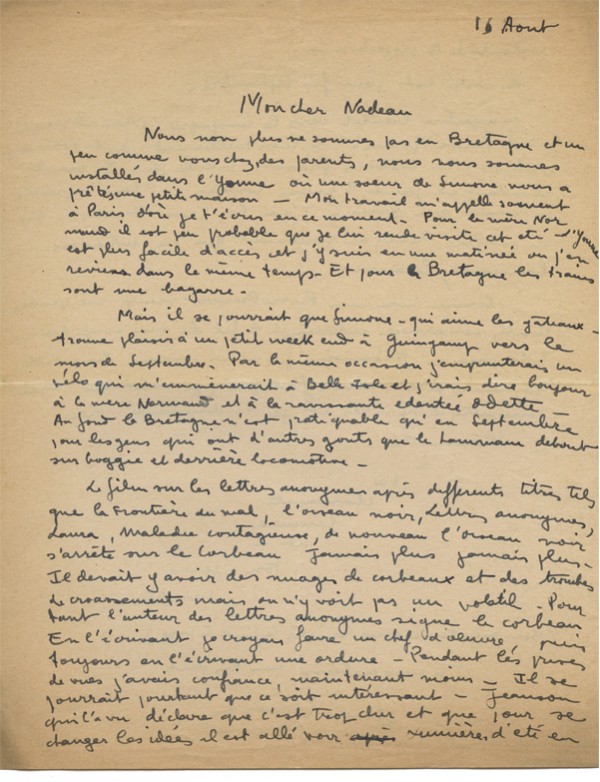 16 Aout
Mon cher Nadeau
Nous non plus ne sommes pas en Bretagne et un
peu comme vous chez des parents, nous nous sommes
installés dans l'Yonne où une soeur de Simone nous a
prêtés une petite maison — Mon travail m'appelle souvent
à Paris d'où je t'écris en ce moment. Pour la mère Nor
mand il est peu probable que je lui rende visite cet été — l'Yonne
est plus facile d'accès et j'y suis en une matinée ou j'en
reviens dans le même temps. Et pour la Bretagne les trains
sont une bagarre.
Mais il se pourrait que Simone — qui aime les gâteaux —
trouve plaisir à un petit week end à Guingamp vers le
mois de Septembre. Par la même occasion j'emprunterais un
vélo qui m'emmènerait à Belle Isle et j'irais dire bonjour
à la mère Normand et à la ravissante edentée Odette —
Au fond la Bretagne n'est pratiquable qu'en Septembre
pour les gens qui ont d'autres gouts que le debout
sur boggie et derrière locomotive —
Le film sur les lettres anonymes après differents titres tels
que la Frontière du mal, l'oiseau noir, Lettres anonymes,
Laura, Maladie contagieuse, de nouveau l'oiseau noir
s'arrête sur le Corbeau Jamais plus jamais plus —
Il devait y avoir des nuages de corbeaux et des
de croassements mais on n'y voit pas un volatil — Pour
tant l'auteur des lettres anonymes signe le corbeau
En l'écrivant je croyais faire un chef d'oeuvre, puis
toujours en l'écrivant une ordure — Pendant les prises
de vues j'avais confiance, maintenant moins — Il se
pourrait pourtant que ce soit intéressant — Jeanson
qui l'a vu déclare que c'est trop dur et que pour se
changer les idées il est allé voir Lumière d'été en